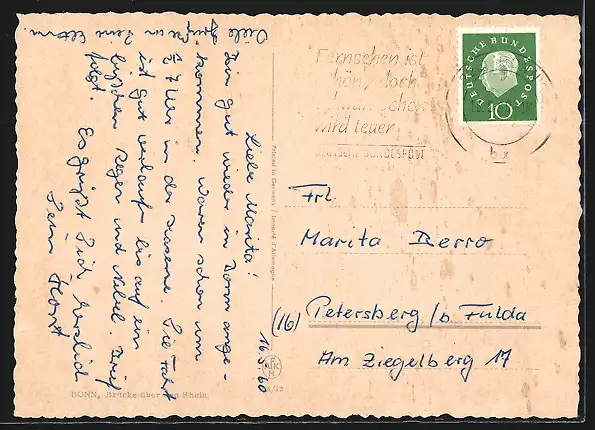 16.5.60
Liebe Marita!
Bin gut wieder in Bonn ange-
kommen. Waren schon um
27 Uhr in der Kaserne. Die Fahrt
ist gut verlaufen bis auf ein
bißchen Regen und Nebel. Brief
folgt.
Es grüßt Dich herzlich
Dein Horst
Viele Grüße an Deine Eltern
BONN, Brücke über den Rhein
Printed in Germany / Imprimé d'Allemagne
Fernsehen ist
schön, doch
Schwarzsehen
wird teuer
DEUTSCHE BUNDESPOST
DEUTSCHE BUNDESPOST
10
bx
Frl.
Marita Berro
(16) Petersberg / b. Fulda
Am Ziegelberg 17